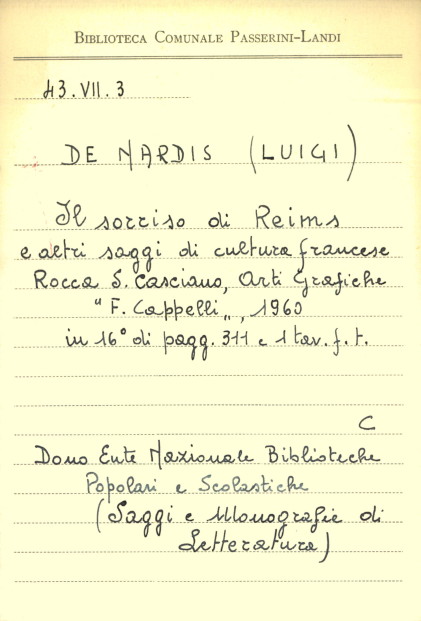 BIBLIOTECA COMUNALE PASSERINI-LANDI
43.VII.3
DE NARDIS (LUIGI)
Il sorriso di Reims
e altri saggi di cultura francese
Rocca S. Casciano, Arti Grafiche
"F. Cappelli", 1960
in 16° di pagg. 311 e 1 tav. f. t.
C
Dono Ente Nazionale Biblioteche
Popolari e Scolastiche
(Saggi e Monografie di
Letteratura)